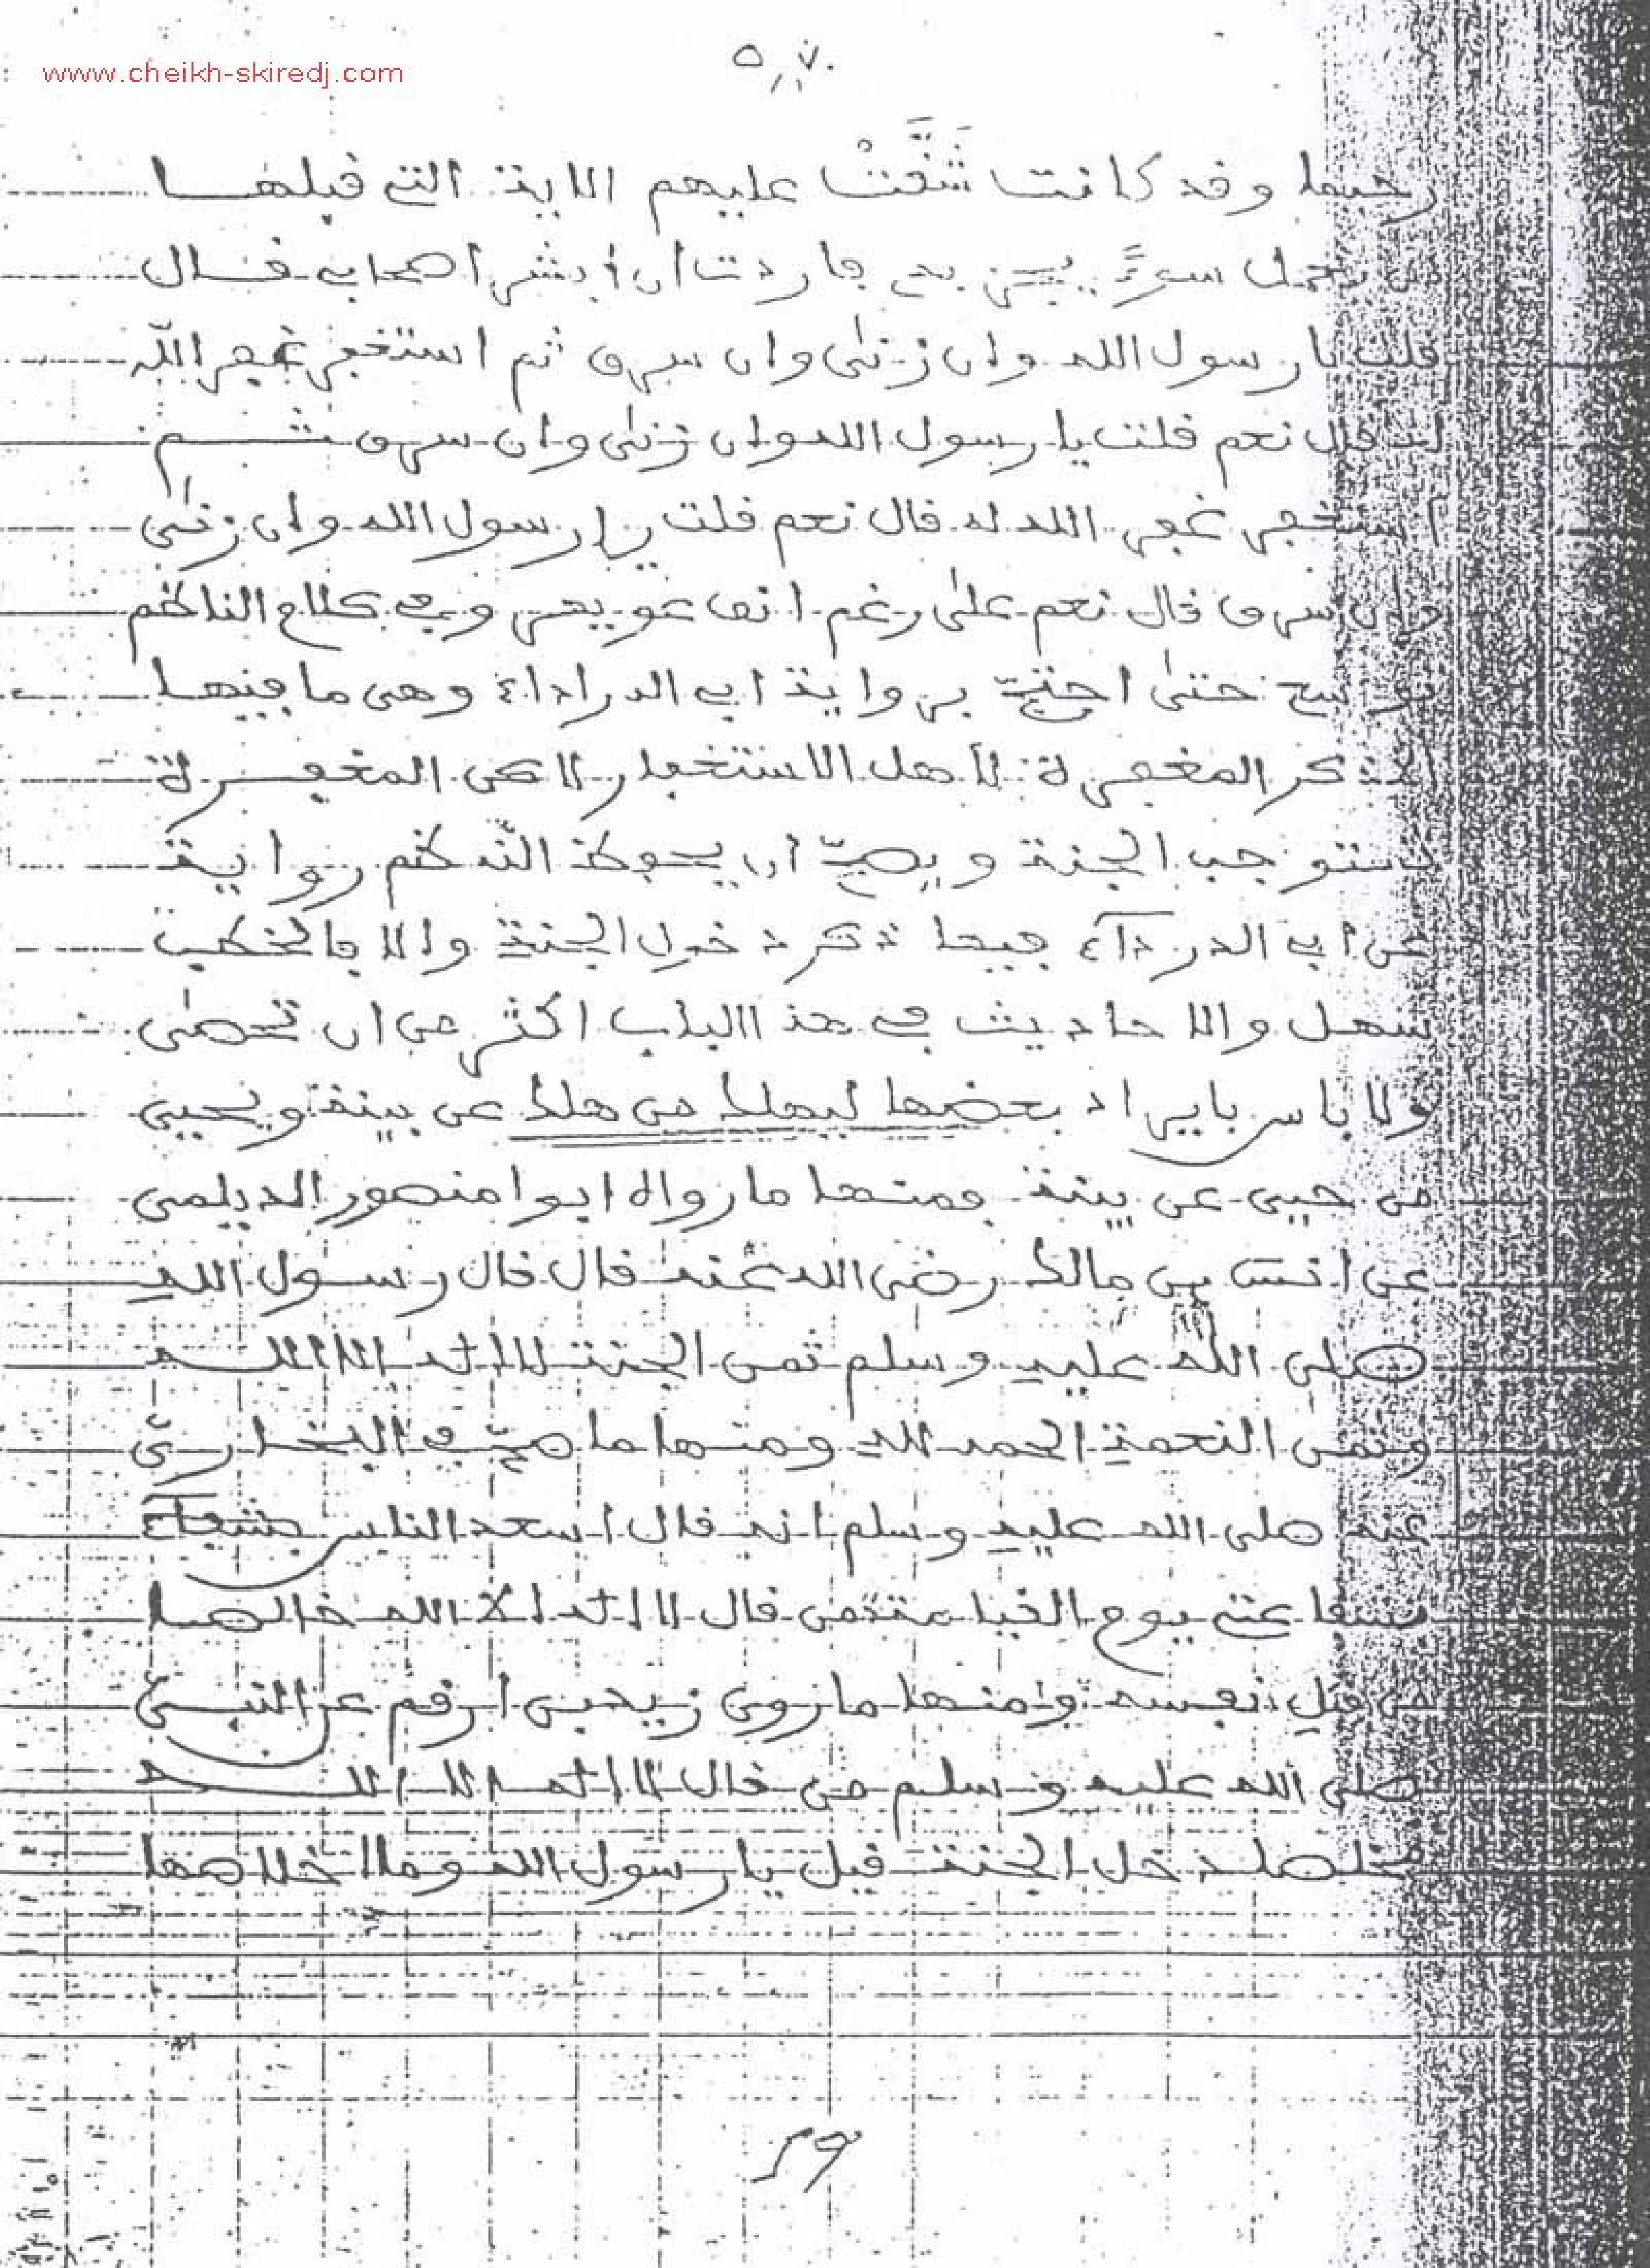 www.cheikh-skiredj.com
رحيما وقد كانت شَقَّتْ عليهم الاية التي قبلها
من يعمل سوءًا يجز به فاردت ان ابشر اصحابي قال
قلت يا رسول الله وان زنى وان سرق ثم استغفر غفر الله
له قال نعم قلت يا رسول الله وان زنى وان سرق ثم
استغفر غفر الله له قال نعم قلت يا رسول الله وان زنى
وان سرق قال نعم على رغم انف عويمر وفي كلام الناظم
حتى احتج برواية ابي الدرداء وهي ما فيها
المغفرة لأهل الاستغفار لاكن المغفرة
تستوجب الجنة ويصح ان يحفظ الناظم رواية
عن ابي الدرداء فيها ذكر دخول الجنة والا فالخطب
سهل والاحاديث في هذا الباب اكثر من ان تحصى
ولا باس بايراد بعضها ليهلك من هلك عن بينة ويحيى
من حيي عن بينة فمنها ما رواه ابوا منصور الديلمي
عن انس بن مالك رضي الله عنه قال قال رسول الله
صلى الله عليه وسلم ثمن الجنة لا اله الا الله
وثمن النعمة الحمد لله ومنها ما صح في البخاري
عنه صلى الله عليه وسلم انه قال اسعد الناس
بشفاعتي يوم القيامة من قال لا اله الا الله خالصا
من قبل نفسه ومنها ما روى زيد بن ارقم عن النبي
صلى الله عليه وسلم من قال لا اله الا الله
مخلصا دخل الجنة قيل يا رسول الله وما اخلاصها